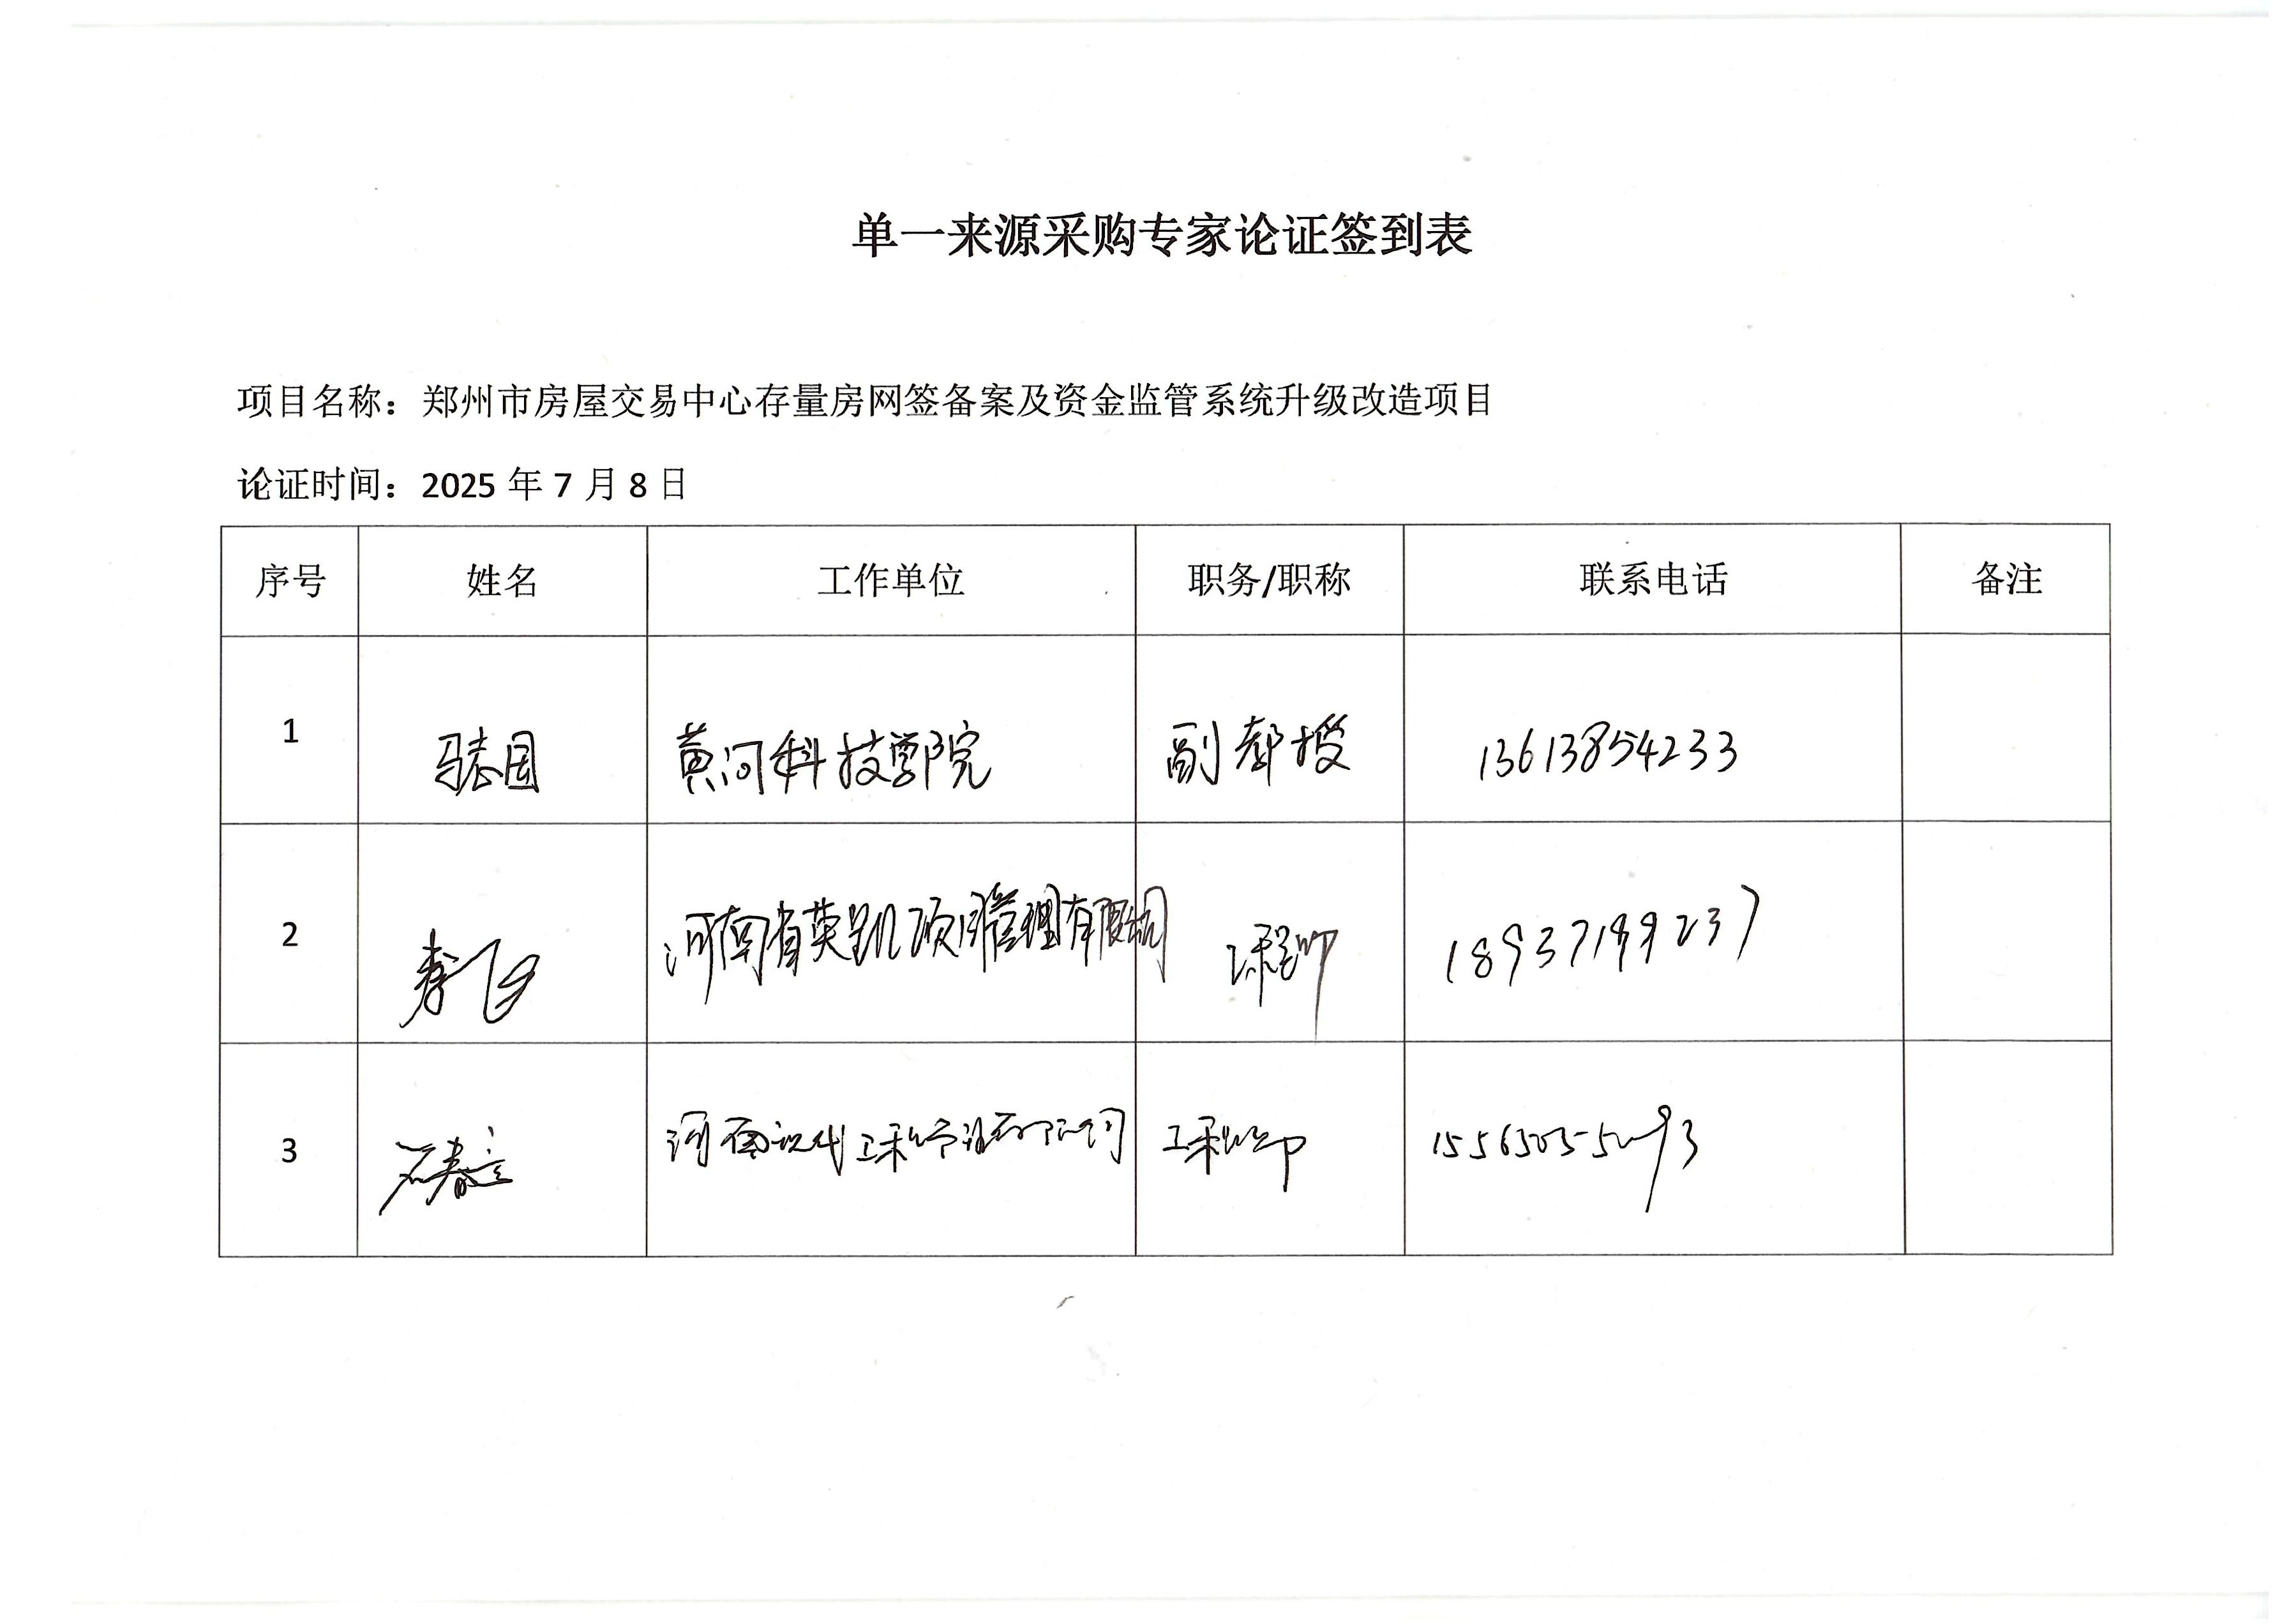 单一来源采购专家论证签到表
项目名称：郑州市房屋交易中心存量房网签备案及资金监管系统升级改造项目
论证时间：2025 年 7 月 8 日
序号 姓名 工作单位 职务/职称 联系电话 备注
1 马志国 黄河科技学院 副教授 13613854233
2 李飞 河南省英凯项目管理有限公司 工程师 18937199237
3 石春 河南 工程 有限公司 工程师